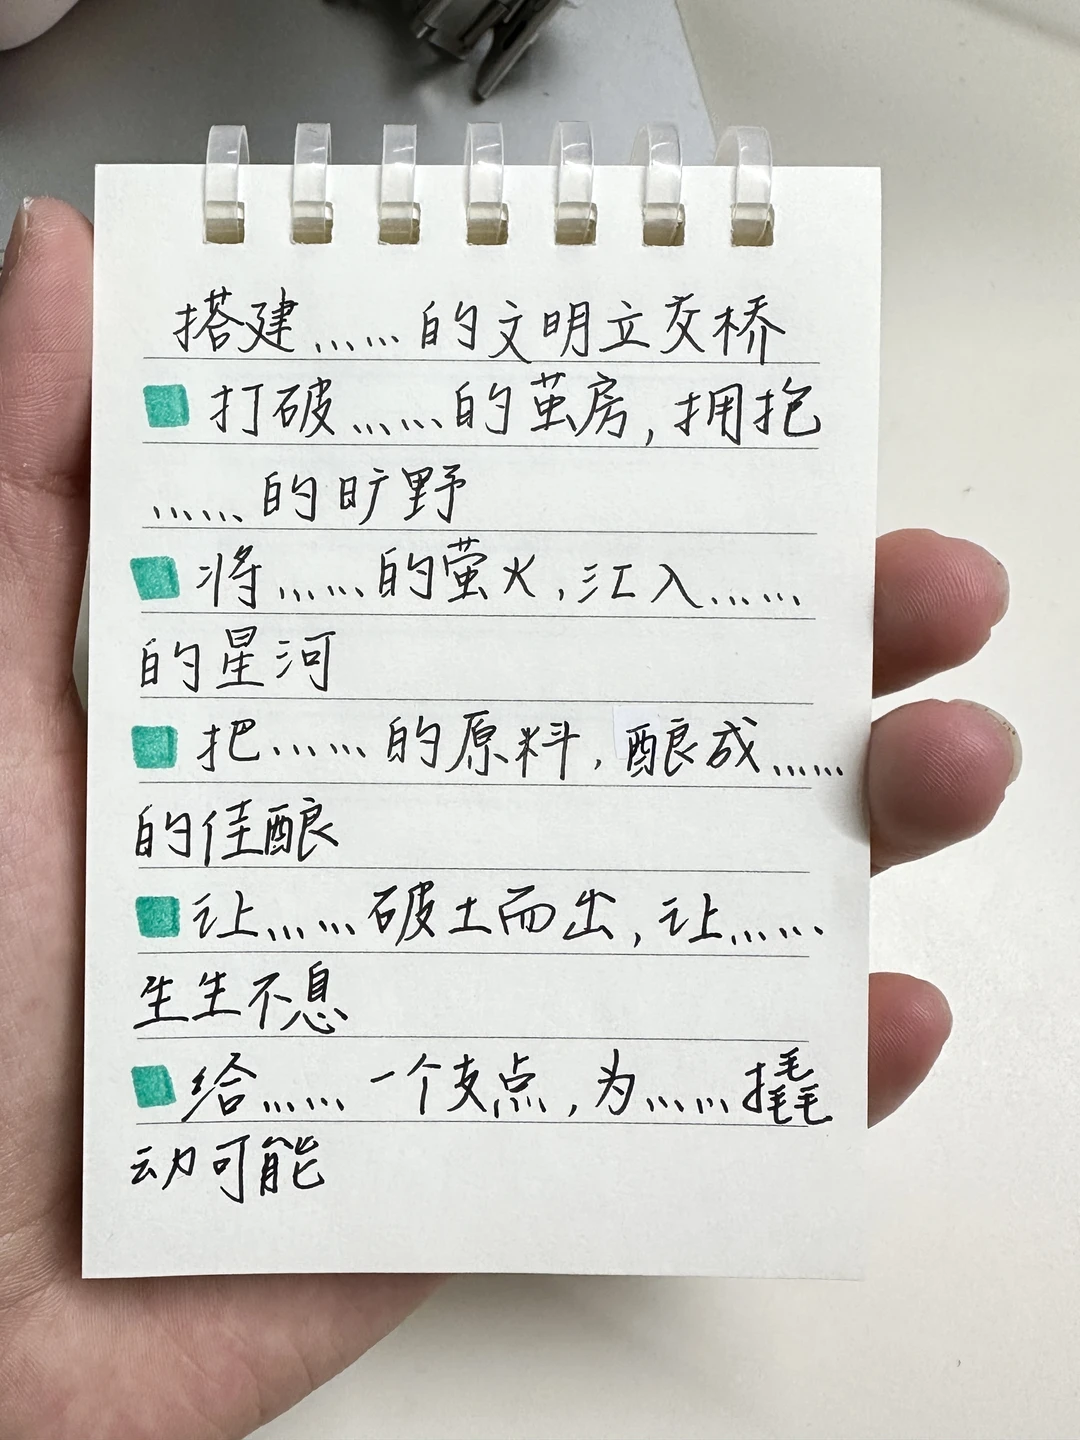 搭建……的文明立交桥
打破……的茧房,拥抱
……的旷野
将……的萤火,汇入……
的星河
把……的原料,酿成……
的佳酿
让……破土而出,让……
生生不息
给……一个支点,为……撬
动可能